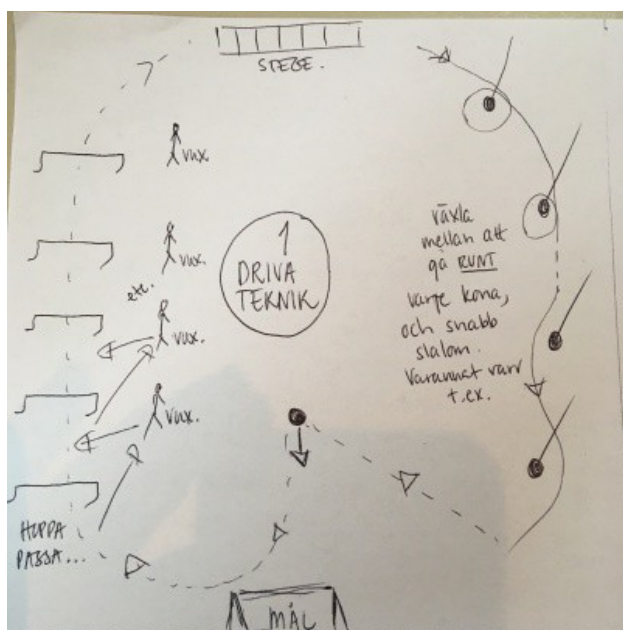 STEGE.
vux.
vux.
etc.
vux.
vux.
1
DRIVA
TEKNIK
växla
mellan att
gå RUNT
varje kona,
och snabb
slalom.
Varannat varv
t.ex.
HOPPA
PASSA...
MÅL